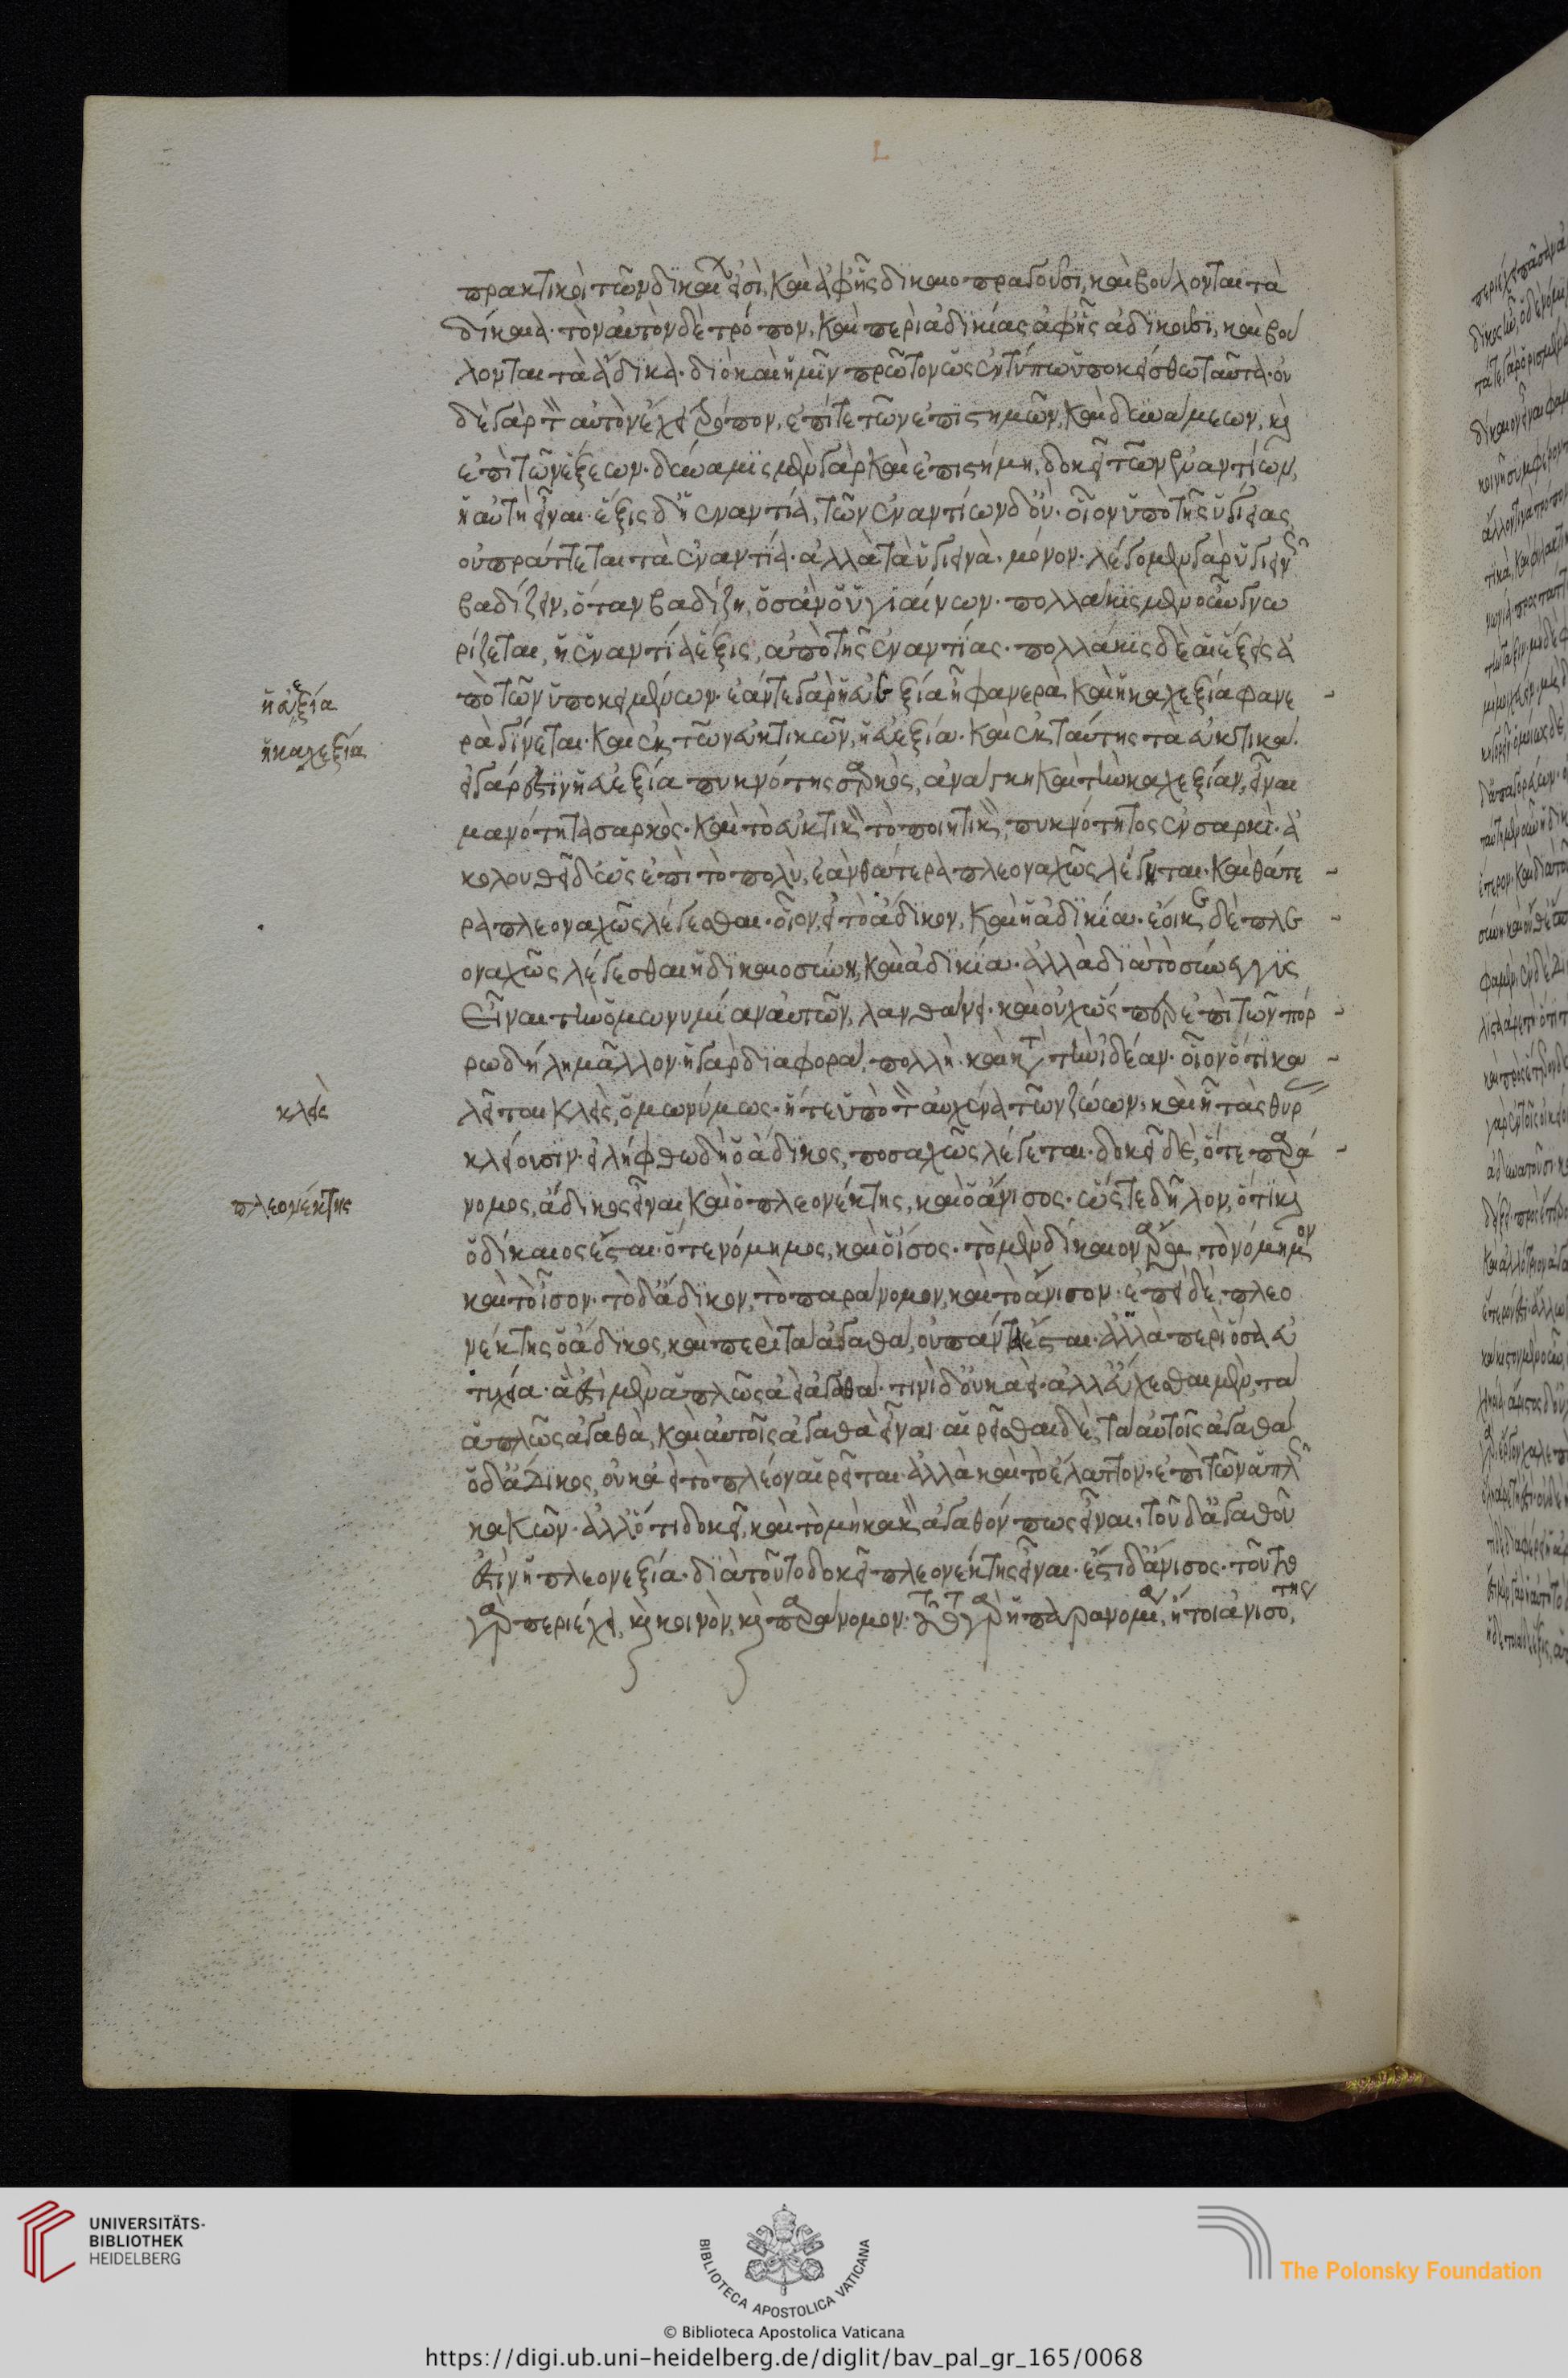 πρακτικοὶ τῶν δικαίων εἰσὶ, καὶ ἀφ' ἧς δικαιοπραγοῦσι, καὶ βούλονται τὰ
δίκαια. τὸν αὐτὸν δὲ τρόπον, καὶ περὶ ἀδικίας ἀφ' ἧς ἀδικοῦσι, καὶ βού
λονται τὰ ἄδικα. διὸ καὶ ἡμῖν πρῶτον ὡς ἐν τύπῳ ὑποκείσθω ταῦτα. οὐ
δὲ γὰρ τὸν αὐτὸν ἔχει τρόπον, ἐπί τε τῶν ἐπιστημῶν, καὶ δυνάμεων, καὶ
ἐπὶ τῶν ἕξεων. δύναμις μὲν γὰρ καὶ ἐπιστήμη, δοκεῖ τῶν ἐναντίων,
ἡ αὐτὴ εἶναι. ἕξις δ' ἡ ἐναντία, τῶν ἐναντίων δ' οὔ. οἷον ὑπὸ τῆς ὑγιείας
οὐ πράττεται τὰ ἐναντία. ἀλλὰ τὰ ὑγιεινὰ μόνον. λέγομεν γὰρ ὑγιεινῶς
βαδίζειν, ὅταν βαδίζῃ, ὡς ἂν ὁ ὑγιαίνων. πολλάκις μὲν οὖν γνω
ρίζεται, ἡ ἐναντία ἕξις, ἀπὸ τῆς ἐναντίας. πολλάκις δὲ αἱ ἕξεις ἀ
πὸ τῶν ὑποκειμένων. ἐάν τε γὰρ ἡ εὐεξία ᾖ φανερὰ, καὶ ἡ καχεξία φανε
ρὰ γίνεται. καὶ ἐκ τῶν εὐεκτικῶν, ἡ εὐεξία. καὶ ἐκ ταύτης τὰ εὐεκτικά.
εἰ γάρ ἐστιν ἡ εὐεξία πυκνότης σαρκὸς, ἀνάγκη καὶ τὴν καχεξίαν, εἶναι
μανότητα σαρκὸς. καὶ τὸ εὐεκτικὸν τὸ ποιητικὸν, πυκνότητος ἐν σαρκὶ. ἀ
κολουθεῖ δ' ὡς ἐπὶ τὸ πολὺ, ἐὰν θάτερα πλεοναχῶς λέγηται. καὶ θάτε
ρα πλεοναχῶς λέγεσθαι. οἷον, εἰ τὸ ἄδικον, καὶ ἡ ἀδικία. ἔοικε δὲ πλε
οναχῶς λέγεσθαι ἡ δικαιοσύνη, καὶ ἀδικία. ἀλλὰ διὰ τὸ σύνεγγυς
εἶναι τὴν ὁμωνυμίαν αὐτῶν, λανθάνει. καὶ οὐχ ὥσπερ ἐπὶ τῶν πόρ
ρω δήλη μᾶλλον. ἡ γὰρ διαφορὰ, πολλὴ. καὶ ἡ κατὰ τὴν ἰδέαν. οἷον ὅτι κα
λεῖται κλεὶς, ὁμωνύμως. ἥ τε ὑπὸ τὸν αὐχένα τῶν ζώων, καὶ ᾗ τὰς θύρας
κλείουσιν. εἰλήφθω δὴ ὁ ἄδικος, ποσαχῶς λέγεται. δοκεῖ δὲ, ὅ τε παρά
νομος, ἄδικος εἶναι καὶ ὁ πλεονέκτης, καὶ ὁ ἄνισος. ὥστε δῆλον, ὅτι καὶ
ὁ δίκαιος ἔσται. ὅ τε νόμιμος, καὶ ὁ ἴσος. τὸ μὲν δίκαιον ἄρα, τὸ νόμιμον
καὶ τὸ ἴσον. τὸ δ' ἄδικον, τὸ παράνομον, καὶ τὸ ἄνισον. ἐπεὶ δὲ, πλεο
νέκτης ὁ ἄδικος, καὶ περὶ τὰ ἀγαθὰ, οὐ πάντα ἔσται. ἀλλὰ περὶ ὅσα εὐ
τυχία. ἃ ἐστὶ μὲν ἁπλῶς ἀεὶ ἀγαθὰ. τινὶ δ' οὐκ ἀεὶ. ἀλλ' εὔχεσθαι μὲν, τὰ
ἁπλῶς ἀγαθὰ, καὶ αὐτοῖς ἀγαθὰ εἶναι. αἱρεῖσθαι δὲ, τὰ αὐτοῖς ἀγαθά
ὁ δ' ἄδικος, οὐκ ἀεὶ τὸ πλέον αἱρεῖται. ἀλλὰ καὶ τὸ ἔλαττον. ἐπὶ τῶν ἁπλῶς
κακῶν. ἀλλ' ὅτι δοκεῖ, καὶ τὸ μὴ κακὸν ἀγαθόν πως εἶναι, τοῦ δ' ἀγαθοῦ
ἐστὶν ἡ πλεονεξία. διὰ τοῦτο δοκεῖ πλεονέκτης εἶναι. ἔστι δ' ἄνισος. τοῦτο
γὰρ περιέχει, καὶ κοινὸν, καὶ παράνομον. τοῦτο γὰρ ἡ παρανομία, ἤτοι ἀνισότης
ἡ εὐεξία
ἡ καχεξία
κλεὶς
πλεονέκτης
UNIVERSITÄTS-
BIBLIOTHEK
HEIDELBERG
BIBLIOTECA APOSTOLICA VATICANA
The Polonsky Foundation
© Biblioteca Apostolica Vaticana
https://digi.ub.uni-heidelberg.de/diglit/bav_pal_gr_165/0068